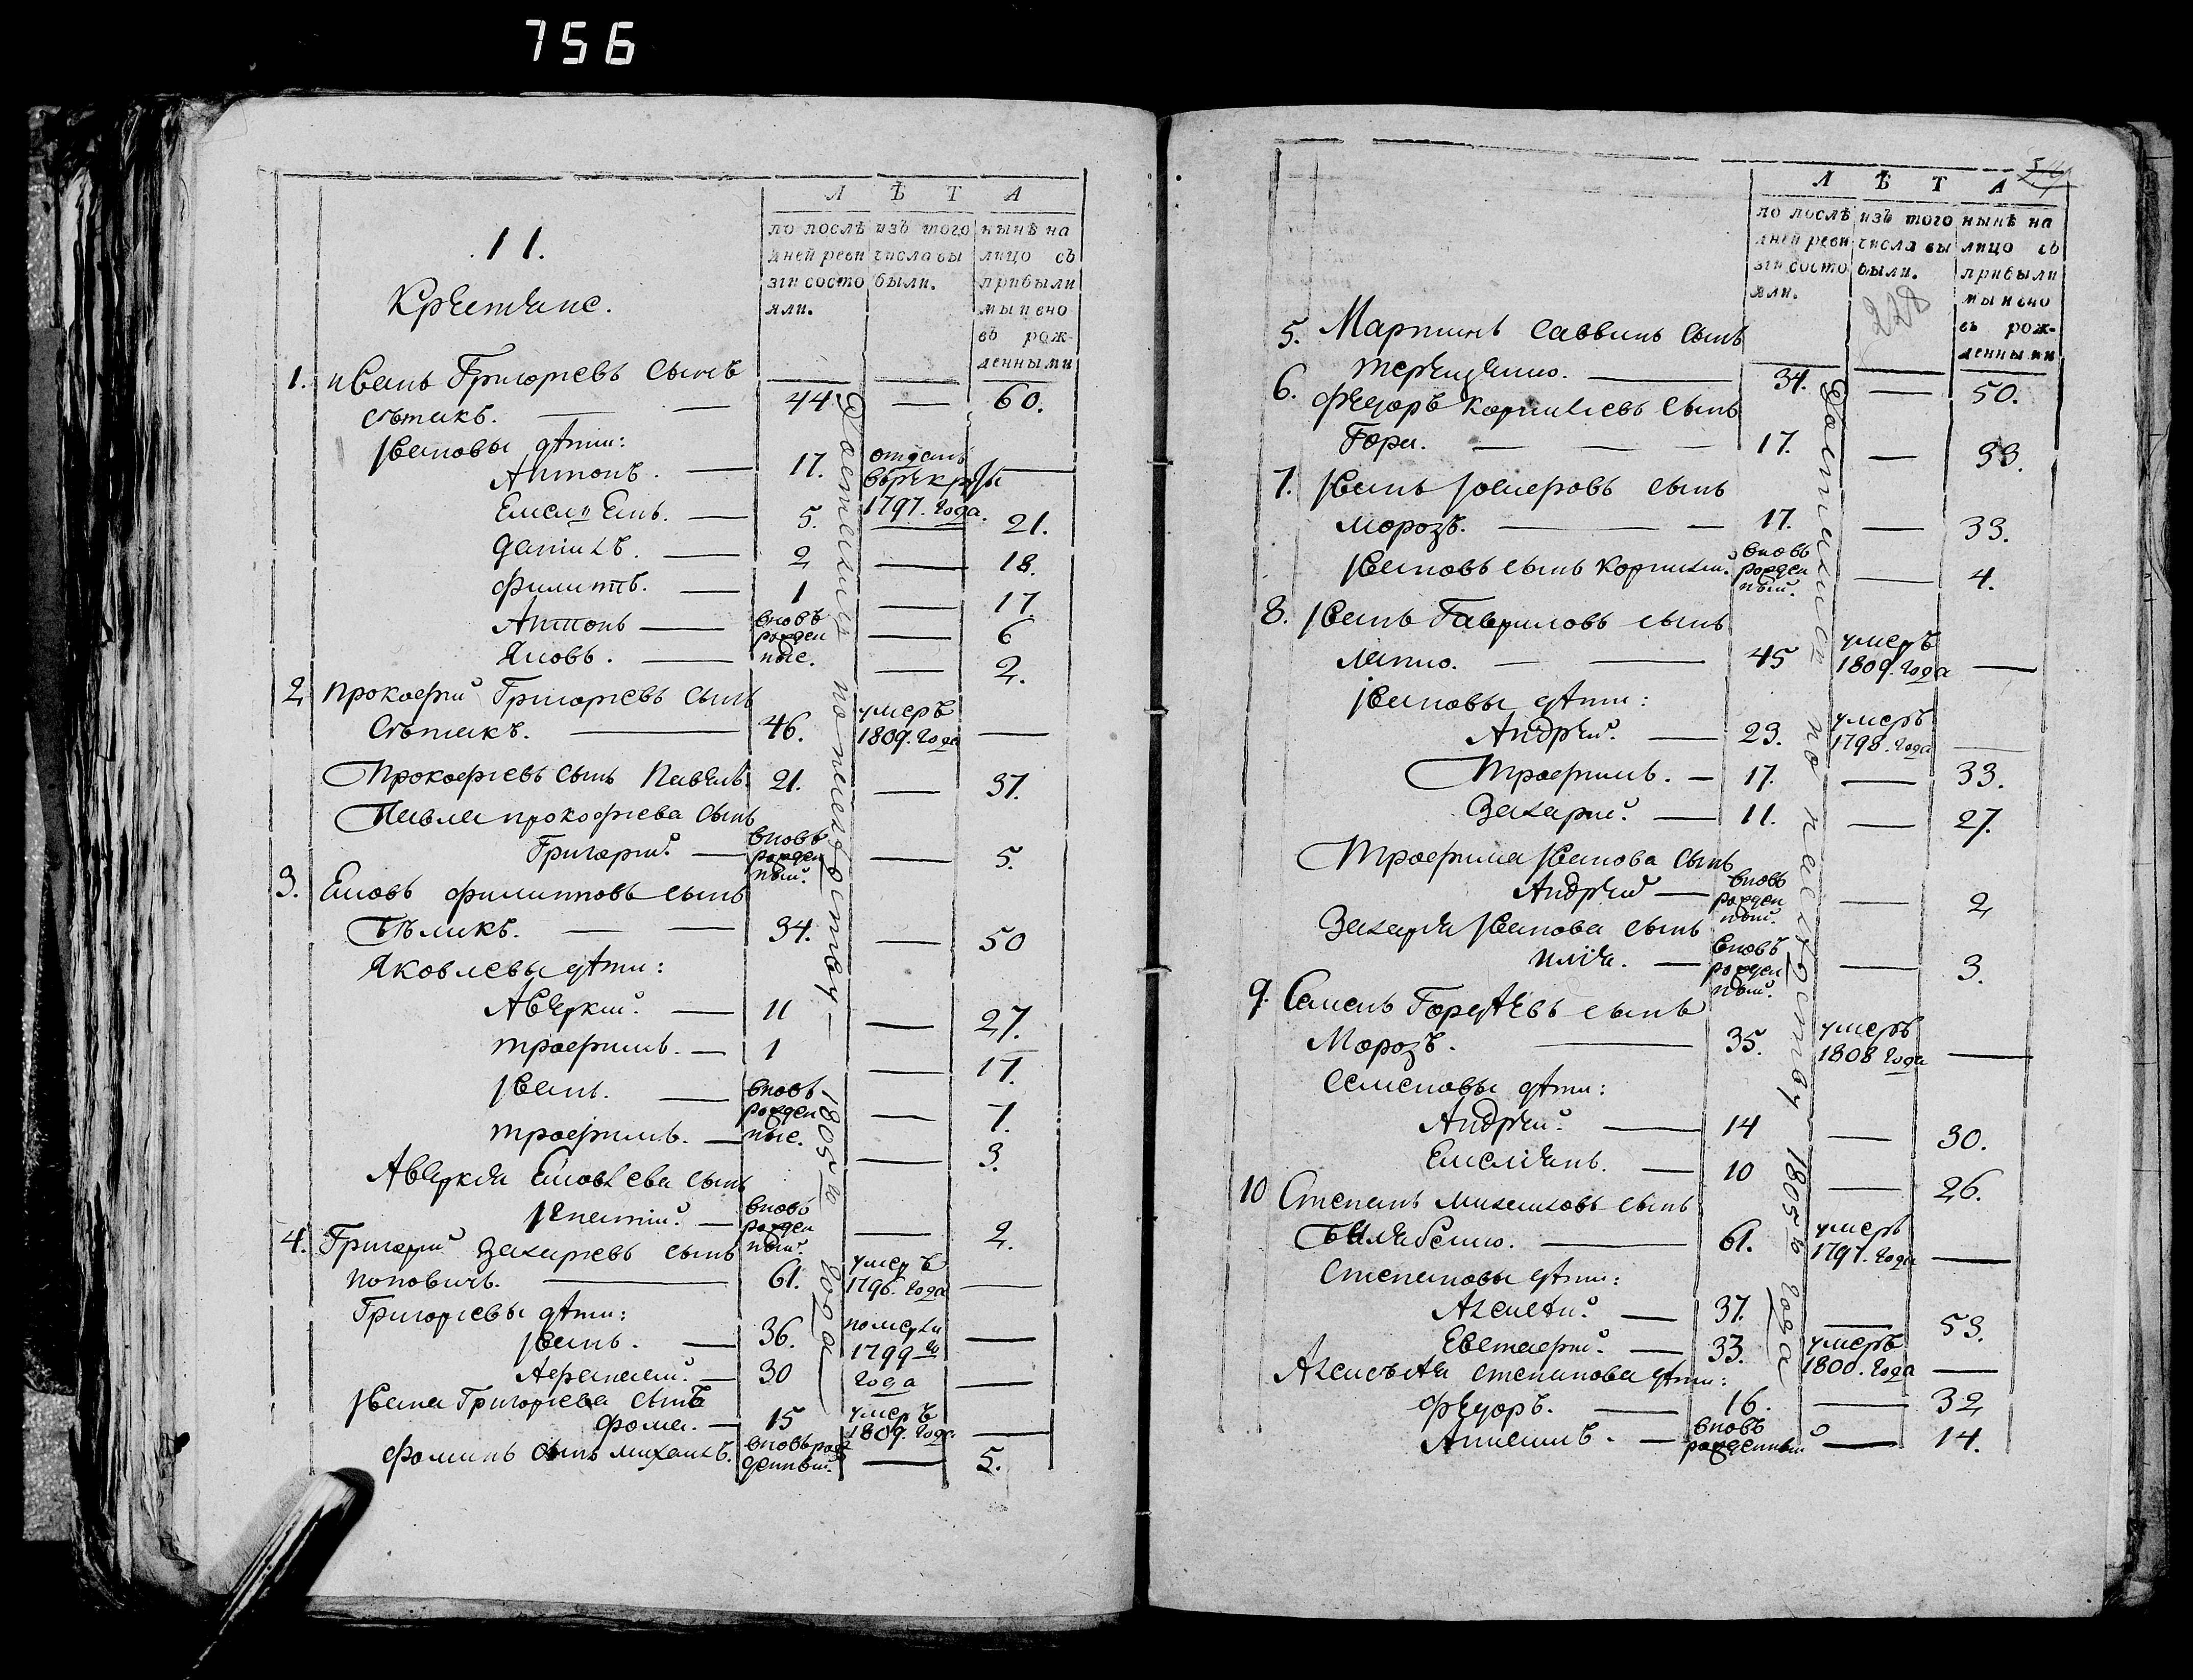 756
Л Ѣ Т А
по послѣ
дней реви
зіи состо
яли.
изъ того
числа вы
были.
нынѣ на
лицо съ
прибыли
ми и вно
въ рож-
денными
11.
Крестьяне.
1. иванъ Григорьевъ сынъ
Сѣтикъ. — — 44. — 60.
Ивановы дѣти:
Антонъ. — 17. отданъ въ рекруты 1797. года. —
Емельянъ. — 5. — 21.
Данилъ. — 2 — 18.
Филиппъ. — 1 — 17.
Антонъ — вновь рожден — 6
Яковъ. — ные. — 2.
2 Прокофий Григорьевъ сынъ
Сѣтикъ. — 46. умеръ 1809. года —
Прокофьевъ сынъ Павелъ. 21. — 37.
Павла прокофьева сынъ
Григорий. — вновь рожден ный. — 5.
3. Яковъ филипповъ сынъ
Бѣликъ. — — 34. — 50
Яковлевы дѣти:
Аверкий. — 11 — 27.
трофимъ. — 1 — 17.
Иванъ. — вновь рожден — 7.
трофимъ. — ные. — 3.
Аверкия Яковлева сынъ
Игнатий. — вновь рожден ный. — 2.
4. Григорий Захарьевъ сынъ
поповичъ. — 61. умеръ 1796. года —
Григорьевы дѣти:
Иванъ. — 36. померли 1799го —
Афанасий. — 30 года —
Ивана Григорьева сынъ
Фома. — 15 умеръ 1809. года —
Фоминъ сынъ михаилъ. вновь рож денный. — 5.
1805го года
Л Ѣ Т А
по послѣ
дней реви
зіи состо
яли.
изъ того
числа вы
были.
нынѣ на
лицо съ
прибыли
ми и вно
въ рож-
денными
228
5. Мартинъ Саввинъ сынъ
терещенко. — 34. — 50.
6. Федоръ корнилевъ сынъ
Гора. — — — 17. — 33.
7. Иванъ сынъ
морозъ. — — 17. — 33.
Ивановъ сынъ корнилий. вновь рожден ный. — 4.
8. Иванъ Гавриловъ сынъ
лапко. — — 45 умеръ 1809. года —
Ивановы дѣти:
Андрей. — 23. умеръ 1798. года —
Трофимъ. — 17. — 33.
Захарий. — 11. — 27.
Трофима Иванова сынъ
Андрей — вновь рожден ный. — 2
Захария Иванова сынъ
илія. — вновь рожден ный. — 3.
9. Семенъ Гордѣевъ сынъ
Морозъ. — 35. умеръ 1808 года —
Семеновы дѣти:
Андрей. — 14 — 30.
Емельянъ. — 10 — 26.
10 Степанъ михайловъ сынъ
— 61. умеръ 1797. года —
Степановы дѣти:
Алексѣй. — 37. — 53.
Евстафий. — 33. умеръ 1800. года —
Алексѣя степанова дѣти:
Федоръ. — 16. — 32
— вновь рожденный — 14.
1805го года